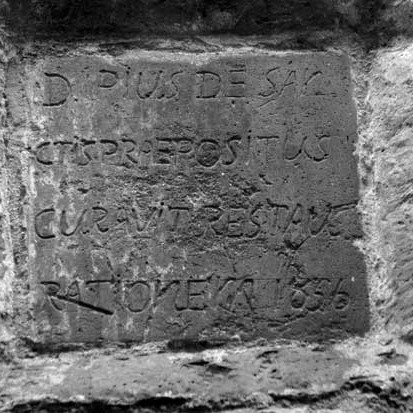 D. PIUS DE SAN
CTIS PRAEPOSITUS
CURAVIT RESTAUR
RATIONEM 1656